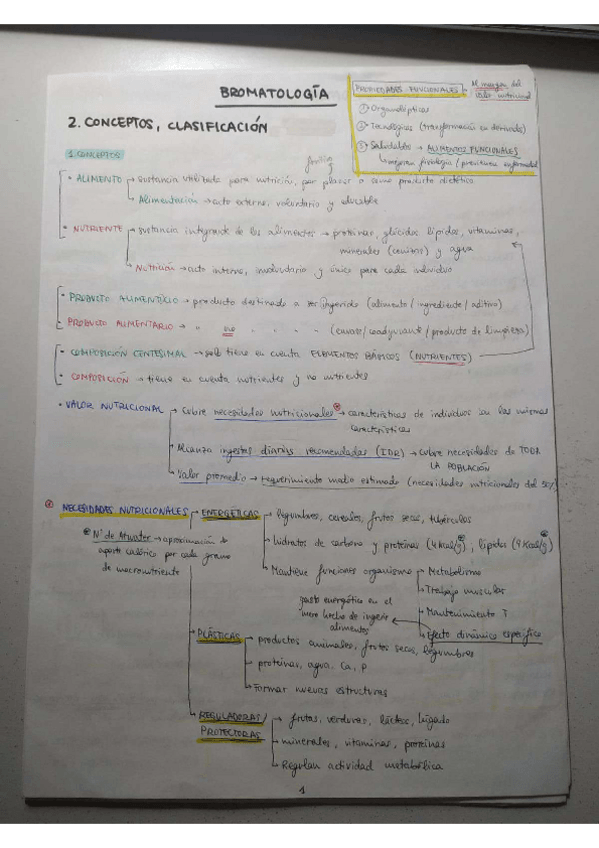 BROMATOLOGÍA
2. CONCEPTOS, CLASIFICACIÓN
PROPIEDADES FUNCIONALES → Al margen del valor nutricional
① Organolépticas
② Tecnológicas (transformación en derivados)
③ Saludables → ALIMENTOS FUNCIONALES
↳ mejoran fisiología / previenen enfermedad
1. CONCEPTOS
• ALIMENTO → sustancia utilizada para nutrición, por placer o como producto dietético
Alimentación → acto externo, voluntario y educable
• NUTRIENTE → sustancia integrante de los alimentos → proteínas, glúcidos, lípidos, vitaminas,
minerales (cenizas) y agua
Nutrición → acto interno, involuntario y único para cada individuo
• PRODUCTO ALIMENTICIO → producto destinado a ser ingerido (alimento / ingrediente / aditivo)
• PRODUCTO ALIMENTARIO → " no " " " (envase / coadyuvante / producto de limpieza)
• COMPOSICIÓN CENTESIMAL → solo tiene en cuenta ELEMENTOS BÁSICOS (NUTRIENTES)
• COMPOSICIÓN → tiene en cuenta nutrientes y no nutrientes
• VALOR NUTRICIONAL → Cubre necesidades nutricionales → características de individuos con las mismas
características
→ Alcanza ingestas diarias recomendadas (IDR) → cubre necesidades de TODA
LA POBLACIÓN
→ Valor promedio → requerimiento medio estimado (necesidades nutricionales del 50%)
NECESIDADES NUTRICIONALES → ENERGÉTICAS → legumbres, cereales, frutos secos, tubérculos
Nº de Atwater → aproximación de
aporte calórico por cada gramo
de macronutriente
→ hidratos de carbono y proteínas (4 kcal/g); lípidos (9 kcal/g)
→ Mantiene funciones organismo → Metabolismo
→ Trabajo muscular
→ Mantenimiento T
→ Efecto dinámico específico
gasto energético en el
mero hecho de ingerir
alimentos
PLÁSTICAS → productos animales, frutos secos, legumbres
→ proteínas, agua, Ca, P
→ Formar nuevas estructuras
REGULADORAS / PROTECTORAS → frutas, verduras, lácteos, hígado
→ minerales, vitaminas, proteínas
→ Regulan actividad metabólica
1